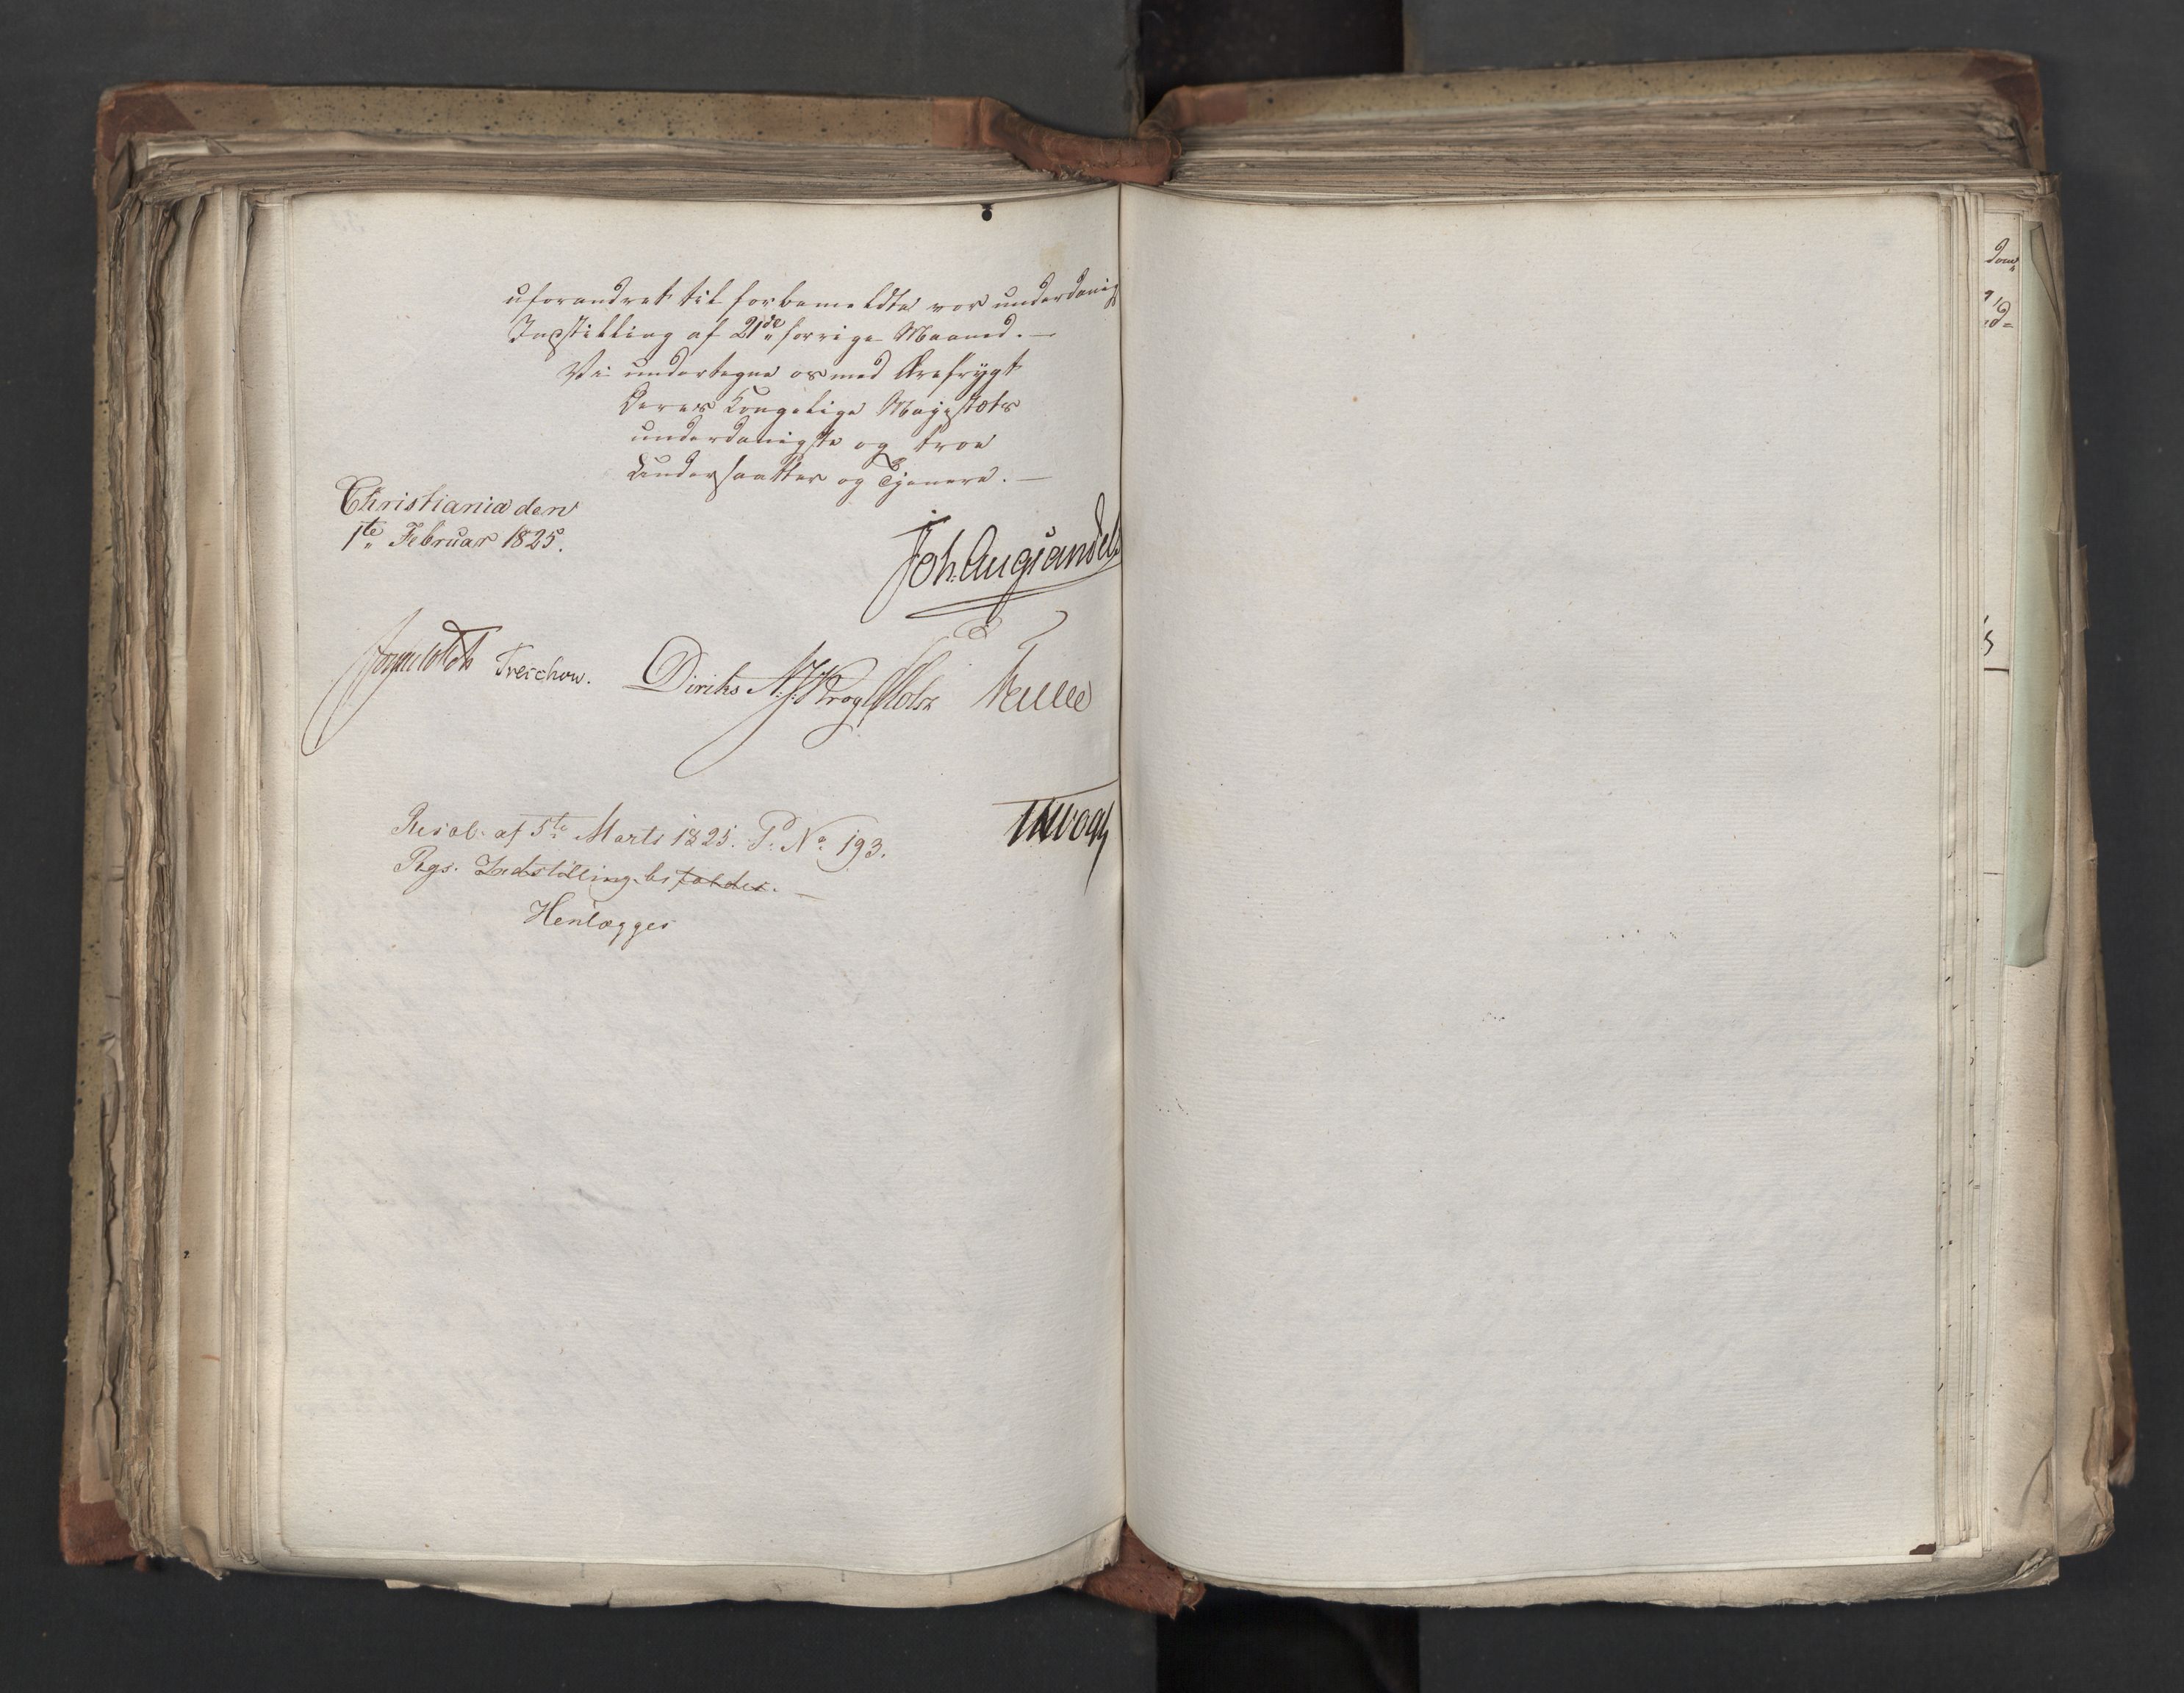 uforandret til forbemeldte vor underdanig
Indstilling af 21de forrige Maaned. —
Vi undertegne os med Ærefrygt
Deres Kongelige Majestæts
underdanigste og troe
Undersaatter og Tjenere. —
Christiania den
1te Februar 1825.
Joh. Aug Sandels
Sommerhielm Treschow. Diriks N. J. Krog Holst Fasting
Resol. af 5te Marts 1825. P. No 193.
Rgs. Indstilling bifaldes. —
Henlægges